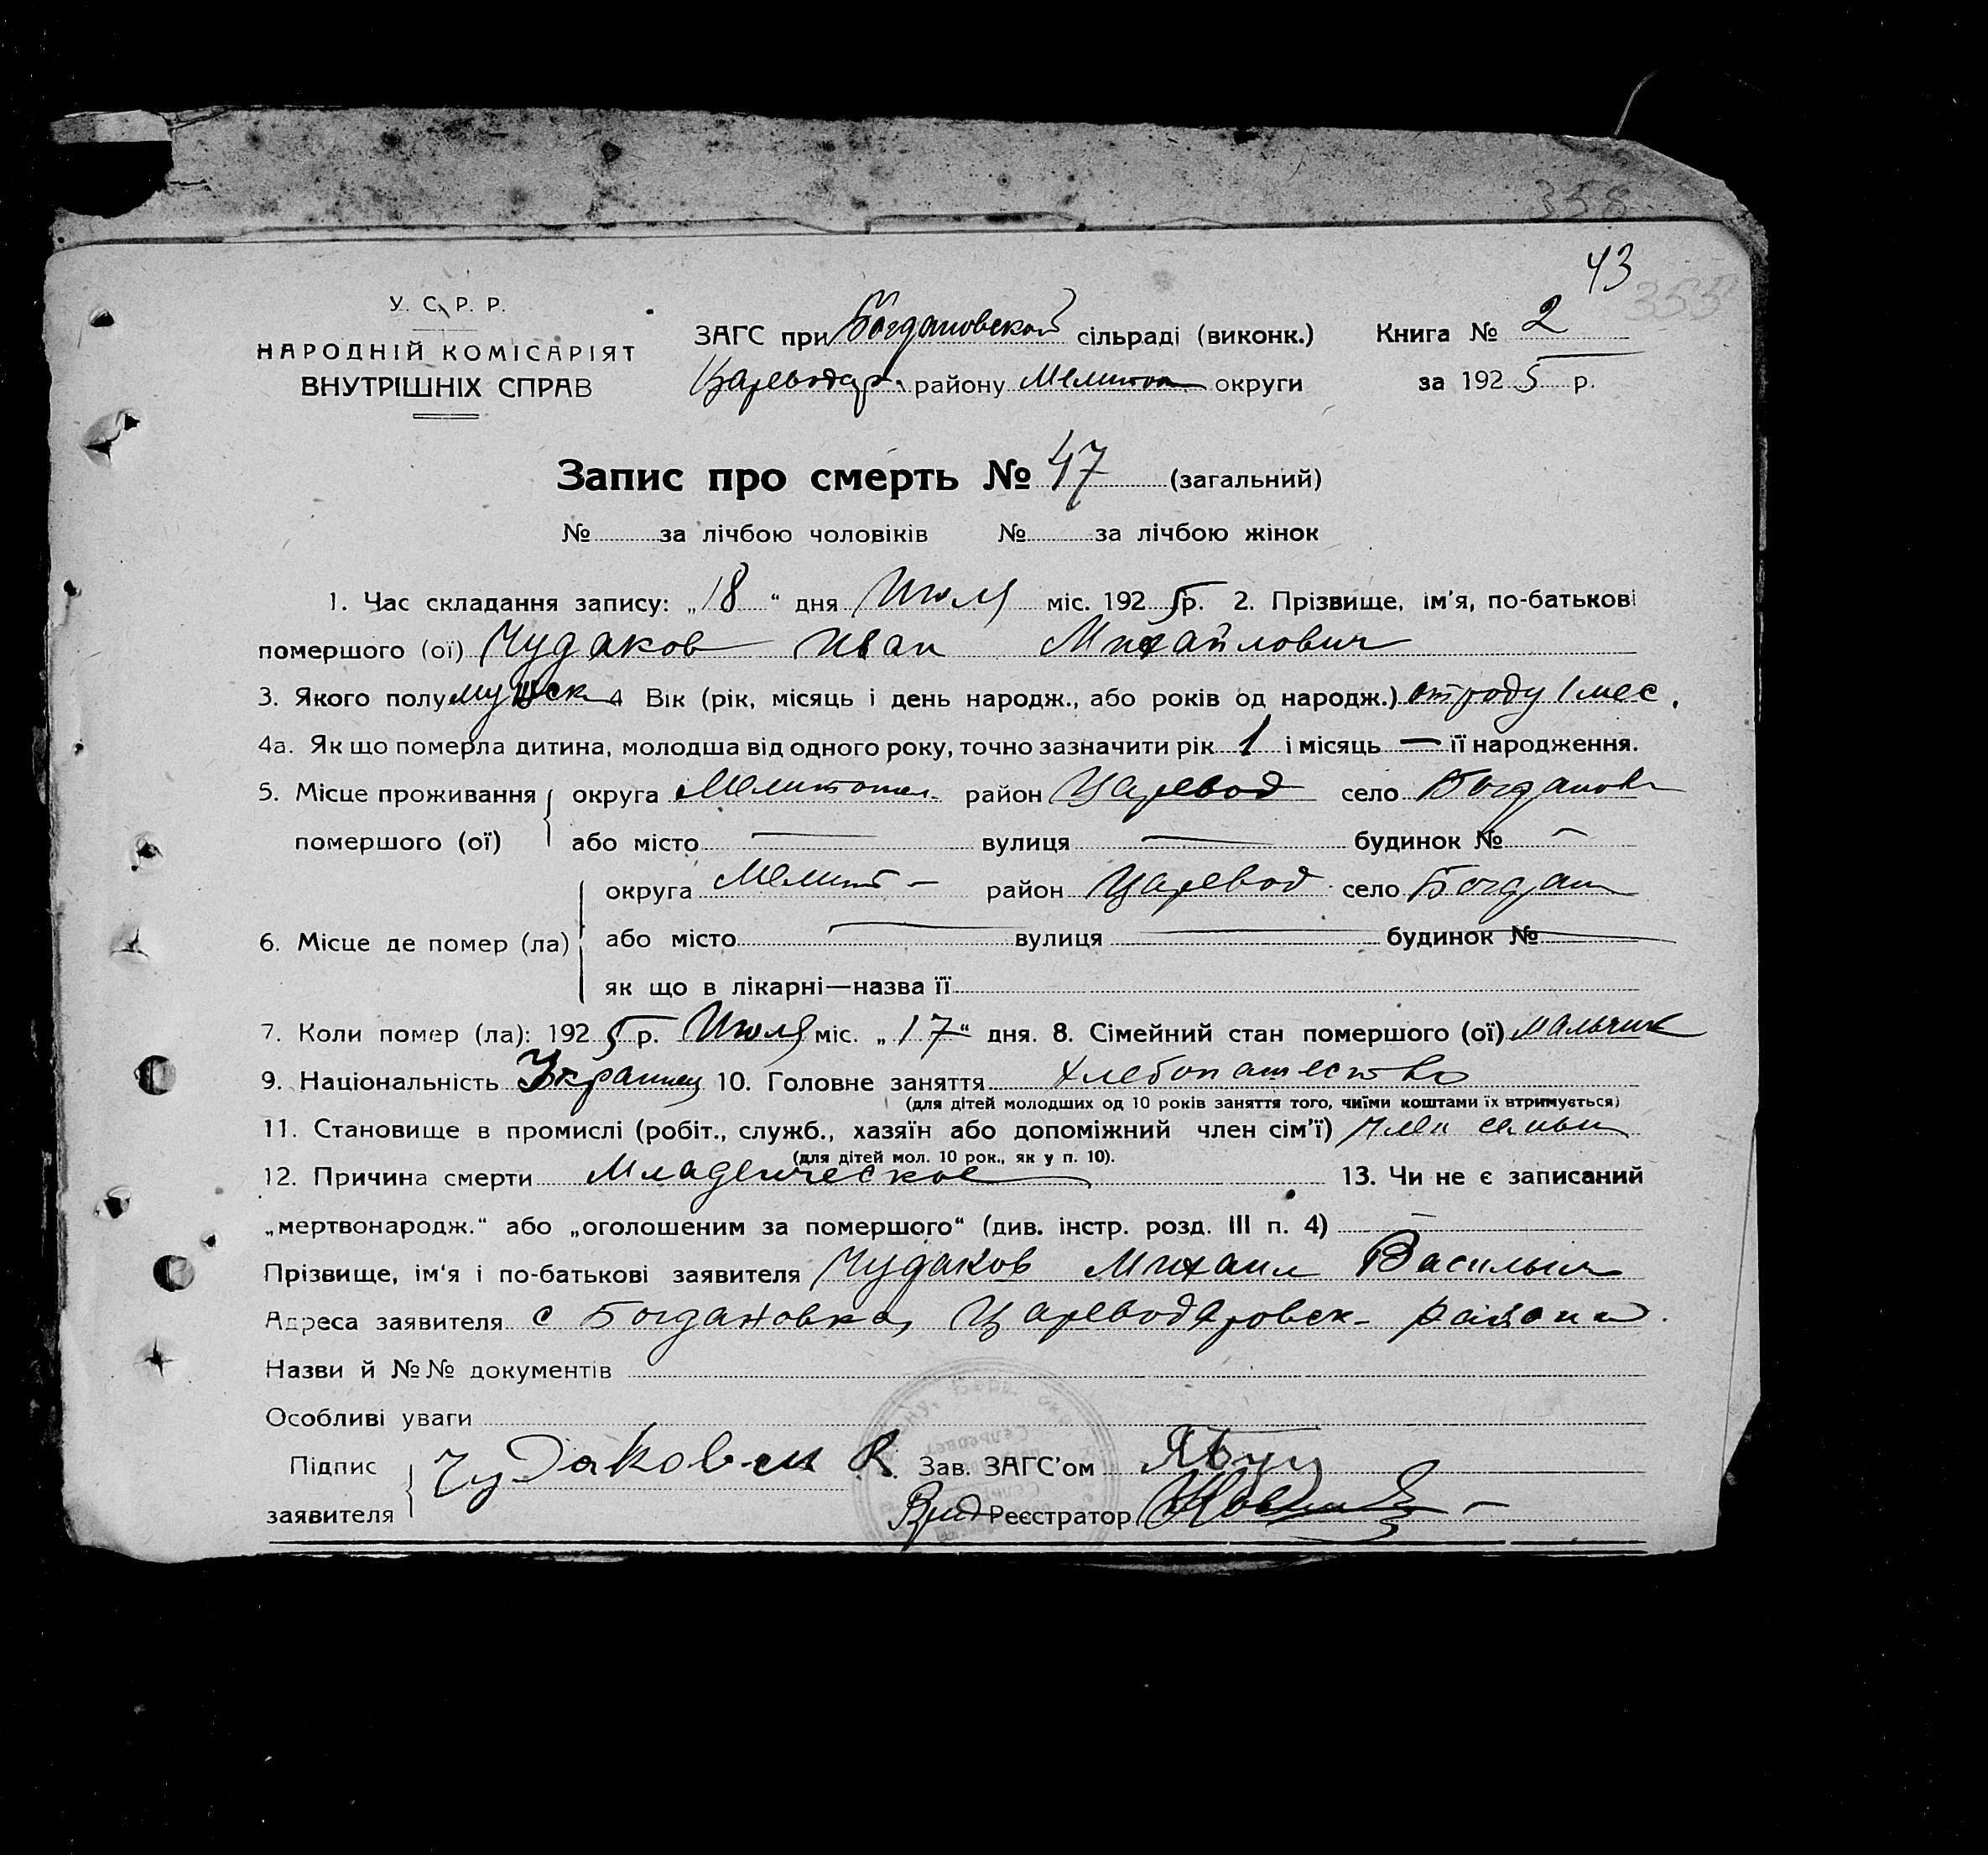 358
43
355
У. С. Р. Р.
НАРОДНІЙ КОМІСАРІЯТ
ВНУТРІШНІХ СПРАВ
ЗАГС при Богдановской сільраді (виконк.) Книга № 2
Цареводар. району Мелитоп округи за 1925 р.
Запис про смерть № 47 (загальний)
№ за лічбою чоловіків № за лічбою жінок
1. Час складання запису: „18“ дня Июля міс. 1925 р. 2. Прізвище, ім'я, по-батькові
помершого (ої) Чудаков Иван Михайлович
3. Якого полу мужск 4 Вік (рік, місяць і день народж., або років од народж.) отроду 1 мес.
4а. Як що померла дитина, молодша від одного року, точно зазначити рік 1 і місяць — її народження.
5. Місце проживання округа Мелитопол. район Царевод село Богдановк
помершого (ої) або місто — вулиця — будинок № —
округа Мелит – район Царевод село Богдан
6. Місце де помер (ла) або місто — вулиця — будинок № —
як що в лікарні—назва її
7. Коли помер (ла): 1925 р. Июля міс. „17“ дня. 8. Сімейний стан помершого (ої) мальчик
9. Національність Украинец 10. Головне заняття хлебопашество
(для дітей молодших од 10 років заняття того, чиїми коштами їх втримується)
11. Становище в промислі (робіт., служб., хазяїн або допоміжний член сім'ї) член семьи
(для дітей мол. 10 рок., як у п. 10).
12. Причина смерти Младенческое 13. Чи не є записаний
„мертвонародж.“ або „оголошеним за помершого“ (див. інстр. розд. III п. 4) —
Прізвище, ім'я і по-батькові заявителя Чудаков Михаил Васильич
Адреса заявителя с Богдановка, Цареводаровск- района.
Назви й №№ документів
Особливі уваги
Підпис Чудаков Зав. ЗАГС'ом
заявителя Врид Реєстратор